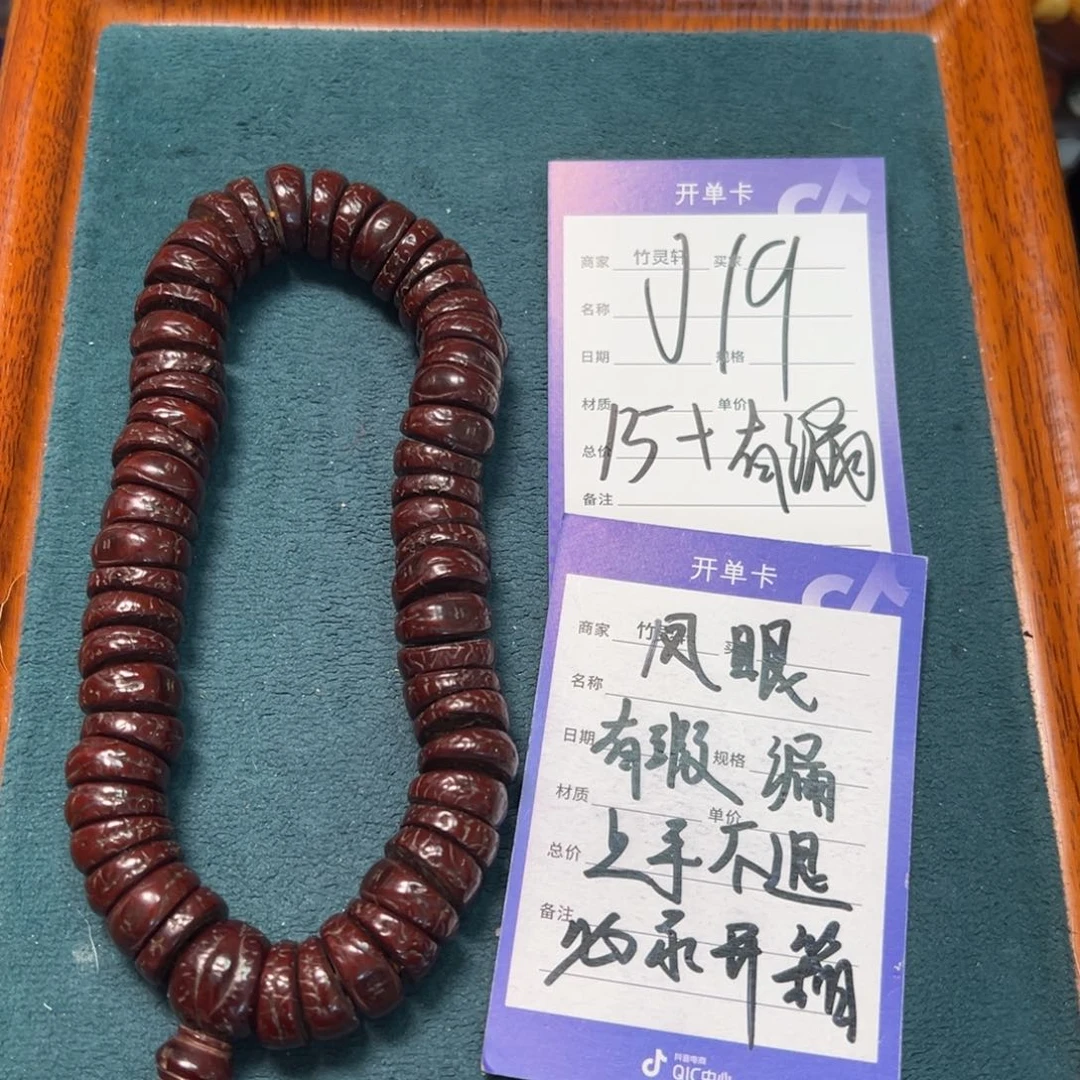 开单卡
商家 竹灵轩 买家
J19
名称
日期 规格
材质 单价
15+有漏
总价
备注
开单卡
商家 竹
凤眼
名称
日期 规格
有瑕漏
材质 单价
上手不退
总价
备注
必录开箱
抖音电商
QIC中心